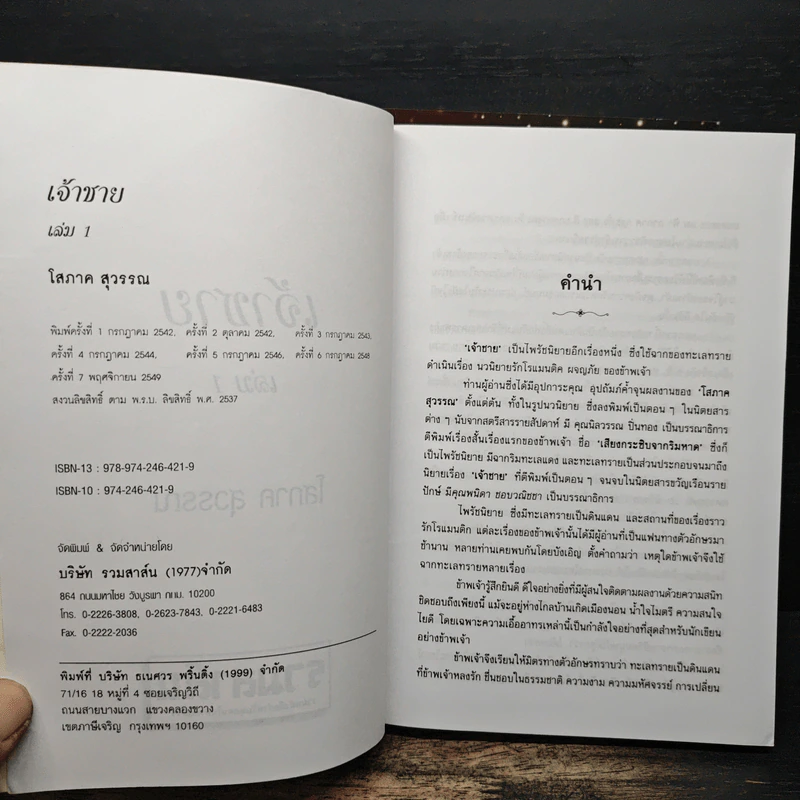 เจ้าชาย
เล่ม 1
โสภาค สุวรรณ
พิมพ์ครั้งที่ 1 กรกฎาคม 2542, ครั้งที่ 2 ตุลาคม 2542, ครั้งที่ 3 กรกฎาคม 2543,
ครั้งที่ 4 กรกฎาคม 2544, ครั้งที่ 5 กรกฎาคม 2546, ครั้งที่ 6 กรกฎาคม 2548
ครั้งที่ 7 พฤศจิกายน 2549
สงวนลิขสิทธิ์ ตาม พ.ร.บ. ลิขสิทธิ์ พ.ศ. 2537
ISBN-13 : 978-974-246-421-9
ISBN-10 : 974-246-421-9
จัดพิมพ์ & จัดจำหน่ายโดย
บริษัท รวมสาส์น (1977)จำกัด
864 ถนนมหาไชย วังบูรพา กทม. 10200
โทร. 0-2226-3808, 0-2623-7843, 0-2221-6483
Fax. 0-2222-2036
พิมพ์ที่ บริษัท ธเนศวร พริ้นติ้ง (1999) จำกัด
71/16 18 หมู่ที่ 4 ซอยเจริญวิถี
ถนนสายบางแวก แขวงคลองขวาง
เขตภาษีเจริญ กรุงเทพฯ 10160
คำนำ
"เจ้าชาย" เป็นไพรัชนิยายอีกเรื่องหนึ่ง ซึ่งใช้ฉากของทะเลทราย
ดำเนินเรื่อง นวนิยายรักโรแมนติค ผจญภัย ของข้าพเจ้า
ท่านผู้อ่านซึ่งได้มีอุปการะคุณ อุปถัมภ์ค้ำจุนผลงานของ "โสภาค
สุวรรณ" ตั้งแต่ต้น ทั้งในรูปนวนิยาย ซึ่งลงพิมพ์เป็นตอน ๆ ในนิตยสาร
ต่าง ๆ นับจากสตรีสารรายสัปดาห์ มี คุณนิลวรรณ ปิ่นทอง เป็นบรรณาธิการ
ตีพิมพ์เรื่องสั้นเรื่องแรกของข้าพเจ้า ชื่อ "เสียงกระซิบจากริมหาด" ซึ่งก็
เป็นไพรัชนิยาย มีฉากริมทะเลแดง และทะเลทรายเป็นส่วนประกอบจนมาถึง
นิยายเรื่อง "เจ้าชาย" ที่ตีพิมพ์เป็นตอน ๆ จนจบในนิตยสารขวัญเรือนราย
ปักษ์ มีคุณพนิดา ชอบวณิชชา เป็นบรรณาธิการ
ไพรัชนิยาย ซึ่งมีทะเลทรายเป็นดินแดน และสถานที่ของเรื่องราว
รักโรแมนติก แต่ละเรื่องของข้าพเจ้านั้นได้มีผู้อ่านที่เป็นแฟนทางตัวอักษรมา
ช้านาน หลายท่านเคยพบกันโดยบังเอิญ ตั้งคำถามว่า เหตุใดข้าพเจ้าจึงใช้
ฉากทะเลทรายหลายเรื่อง
ข้าพเจ้ารู้สึกยินดี ดีใจอย่างยิ่งที่มีผู้สนใจติดตามผลงานด้วยความสนิท
ชิดชอบถึงเพียงนี้ แม้จะอยู่ห่างไกลบ้านเกิดเมืองนอน น้ำใจไมตรี ความสนใจ
ไยดี โดยเฉพาะความเอื้ออาทรเหล่านี้เป็นกำลังใจอย่างที่สุดสำหรับนักเขียน
อย่างข้าพเจ้า
ข้าพเจ้าจึงเรียนให้มิตรทางตัวอักษรทราบว่า ทะเลทรายเป็นดินแดน
ที่ข้าพเจ้าหลงรัก ชื่นชอบในธรรมชาติ ความงาม ความมหัศจรรย์ การเปลี่ยน